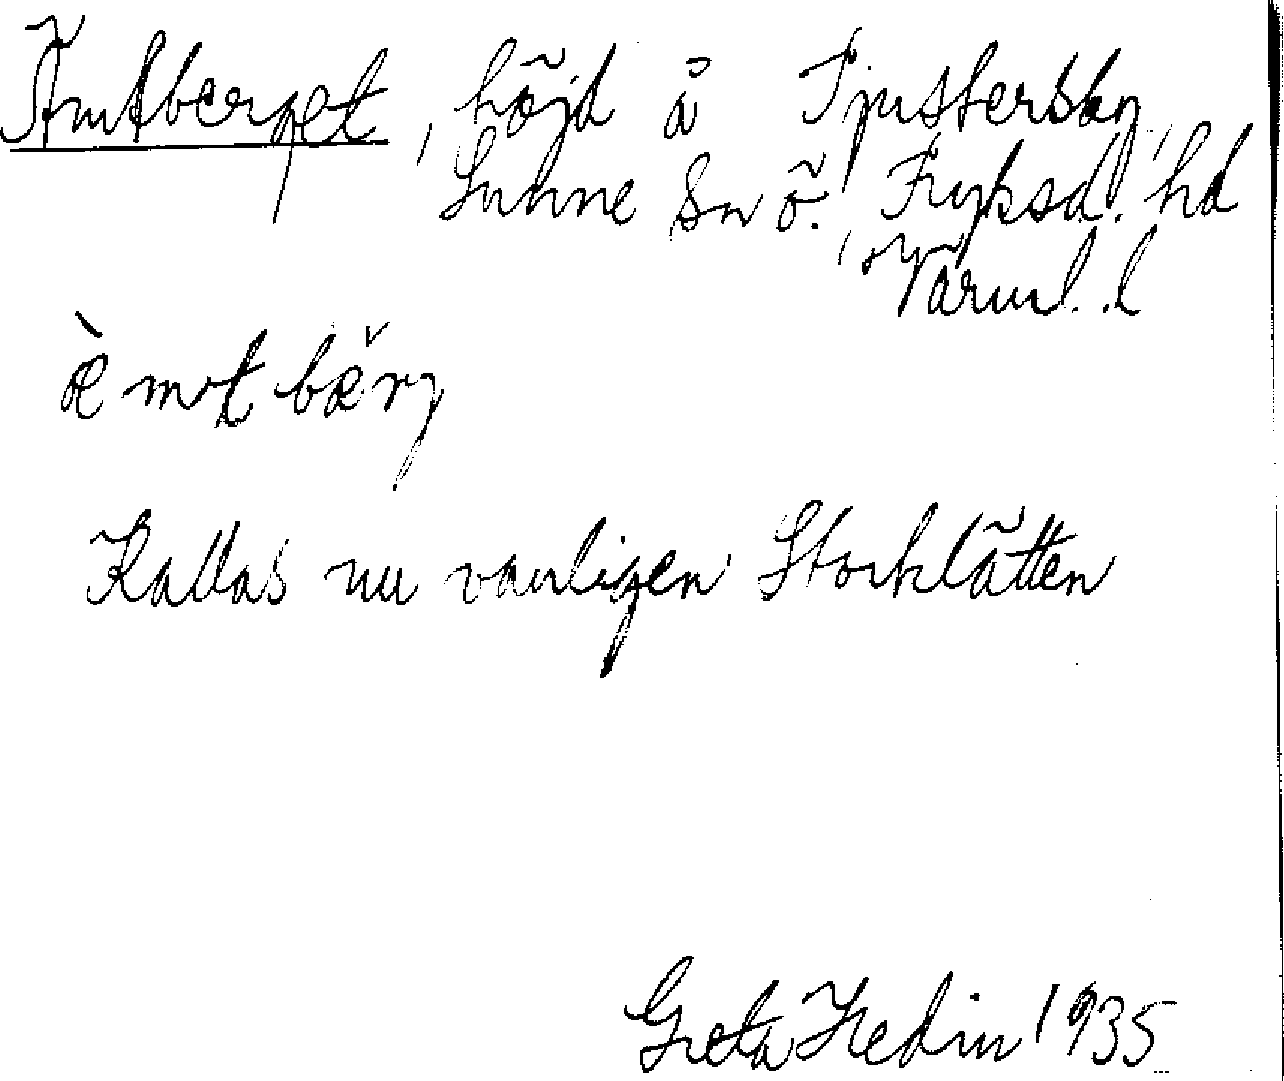 Ämtberget, höjd å Tjustersby,
Sunne sn ö., Fryksd. hd
Värml. l
æ̀ mt bæ̌rj
Kallas nu vanligen Storklätten
Greta Hedin 1935